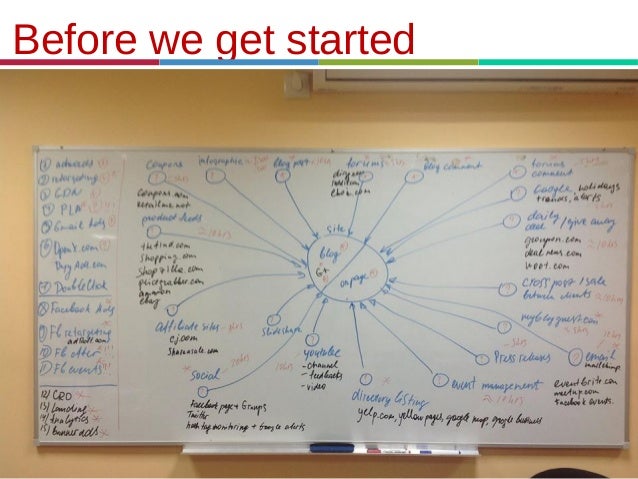 Before we get started
1) adwords
2) retargeting
3) GDN
4) PLA
5) Gmail Ads
6) OpenX.com
7) DoubleClick
8) Facebook Ads
9) FB retargeting
10) FB offer
11) FB events
12/ CRO
13/ Landing
14/ Analytics
15/ Banner ads
coupons
coupons.com
retailmenot
product feeds
≈10hrs
thefind.com
shopping.com
shopzilla.com
pricegrabber.com
amazon
ebay
affiliate sites
cj.com
shareasale.com
social
Facebook page + Groups
Twitter
hashtag monitoring + Google alerts
infographics
blog post
forums
blog comment
forums
comment
Google
trends, alerts
holidays
daily
deal / give away
groupon.com
dealnews.com
woot.com
≈10hrs
cross post / sale
between clients
myblogguest.com
Press releases
email
mailchimp
event management
≈10hrs
eventbrite.com
meetup.com
Facebook events.
directory listing
yelp.com, yellow pages, google map, google business
youtube
- channel
- feedbacks
- video
slideshare
site
blog
G+
onpage